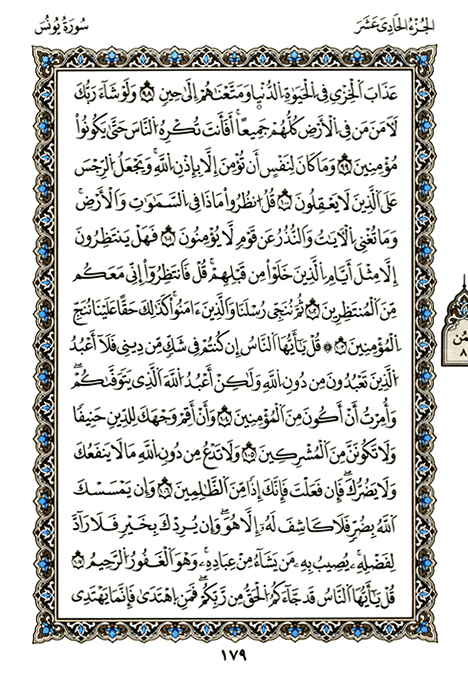 الجُزْءُ الحَادِى عَشَرَ
سُورَةُ يُونُسَ
عَذَابَ الْخِزْىِ فِى الْحَيَوٰةِ الدُّنْيَا وَمَتَّعْنَٰهُمْ إِلَىٰ حِينٍ ٩٨ وَلَوْ شَآءَ رَبُّكَ
لَأٓمَنَ مَن فِى الْأَرْضِ كُلُّهُمْ جَمِيعًا أَفَأَنتَ تُكْرِهُ النَّاسَ حَتَّىٰ يَكُونُواْ
مُؤْمِنِينَ ٩٩ وَمَا كَانَ لِنَفْسٍ أَن تُؤْمِنَ إِلَّا بِإِذْنِ اللَّهِ وَيَجْعَلُ الرِّجْسَ
عَلَى الَّذِينَ لَا يَعْقِلُونَ ١٠٠ قُلُ انظُرُواْ مَاذَا فِى السَّمَٰوَٰتِ وَالْأَرْضِ
وَمَا تُغْنِى الْأَيَٰتُ وَالنُّذُرُ عَن قَوْمٍ لَّا يُؤْمِنُونَ ١٠١ فَهَلْ يَنتَظِرُونَ
إِلَّا مِثْلَ أَيَّامِ الَّذِينَ خَلَوْاْ مِن قَبْلِهِمْ قُلْ فَانتَظِرُواْ إِنِّى مَعَكُم
مِّنَ الْمُنتَظِرِينَ ١٠٢ ثُمَّ نُنَجِّى رُسُلَنَا وَالَّذِينَ ءَامَنُواْ كَذَٰلِكَ حَقًّا عَلَيْنَا نُنَجِّ
الْمُؤْمِنِينَ ١٠٣ قُلْ يَٰأَيُّهَا النَّاسُ إِن كُنتُمْ فِى شَكٍّ مِّن دِينِى فَلَا أَعْبُدُ
الَّذِينَ تَعْبُدُونَ مِن دُونِ اللَّهِ وَلَٰكِنْ أَعْبُدُ اللَّهَ الَّذِى يَتَوَفَّىٰكُمْ
وَأُمِرْتُ أَنْ أَكُونَ مِنَ الْمُؤْمِنِينَ ١٠٤ وَأَنْ أَقِمْ وَجْهَكَ لِلدِّينِ حَنِيفًا
وَلَا تَكُونَنَّ مِنَ الْمُشْرِكِينَ ١٠٥ وَلَا تَدْعُ مِن دُونِ اللَّهِ مَا لَا يَنفَعُكَ
وَلَا يَضُرُّكَ فَإِن فَعَلْتَ فَإِنَّكَ إِذًا مِّنَ الظَّٰلِمِينَ ١٠٦ وَإِن يَمْسَسْكَ
اللَّهُ بِضُرٍّ فَلَا كَاشِفَ لَهُ إِلَّا هُوَ وَإِن يُرِدْكَ بِخَيْرٍ فَلَا رَآدَّ
لِفَضْلِهِ يُصِيبُ بِهِ مَن يَشَآءُ مِنْ عِبَادِهِ وَهُوَ الْغَفُورُ الرَّحِيمُ ١٠٧
قُلْ يَٰأَيُّهَا النَّاسُ قَدْ جَآءَكُمُ الْحَقُّ مِن رَّبِّكُمْ فَمَنِ اهْتَدَىٰ فَإِنَّمَا يَهْتَدِى
١٧٩